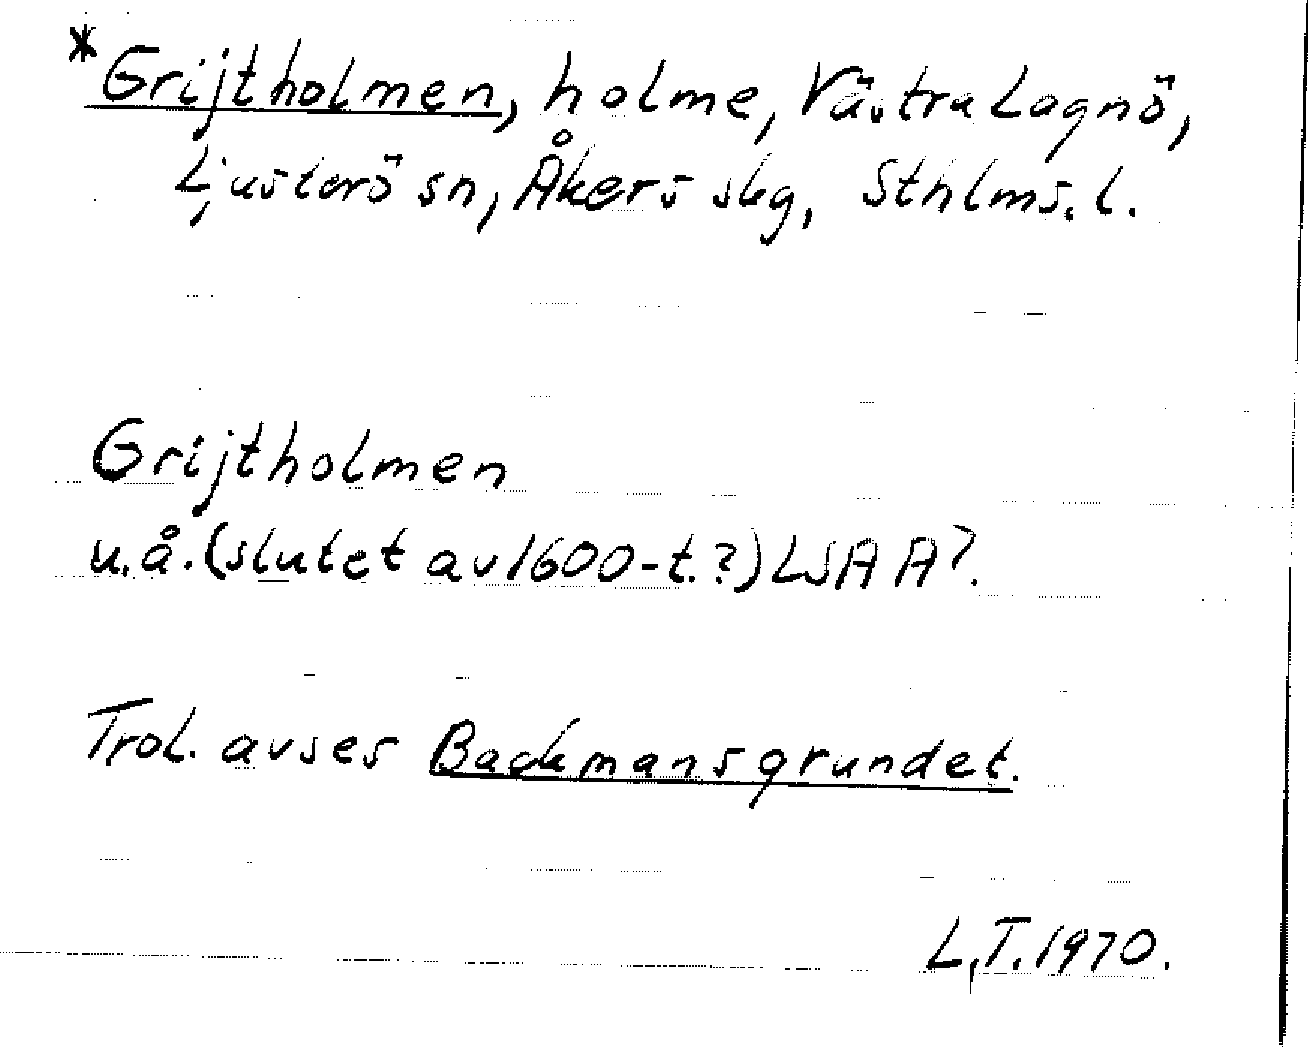 *Grijtholmen, holme, Västra Lagnö,
Ljusterö sn, Åkers skg, Sthlms. l.
Grijtholmen
u.å. (slutet av 1600-t.?) LSA A7.
Trol. avses Backmansgrundet.
L.T. 1970.